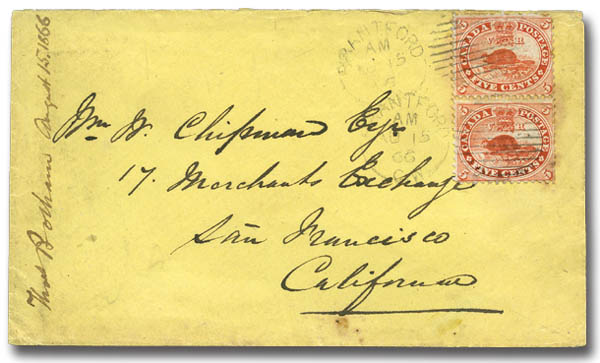 Thos Botham August 15. 1866
BRANTFORD
AM
15
BRANTFORD
AM
AU 15
66
C.W.
5 CANADA POSTAGE 5
5 FIVE CENTS 5
5 CANADA POSTAGE 5
5 FIVE CENTS 5
Wm W. Chipman Esqr
17. Merchants Exchange
San Francisco
California